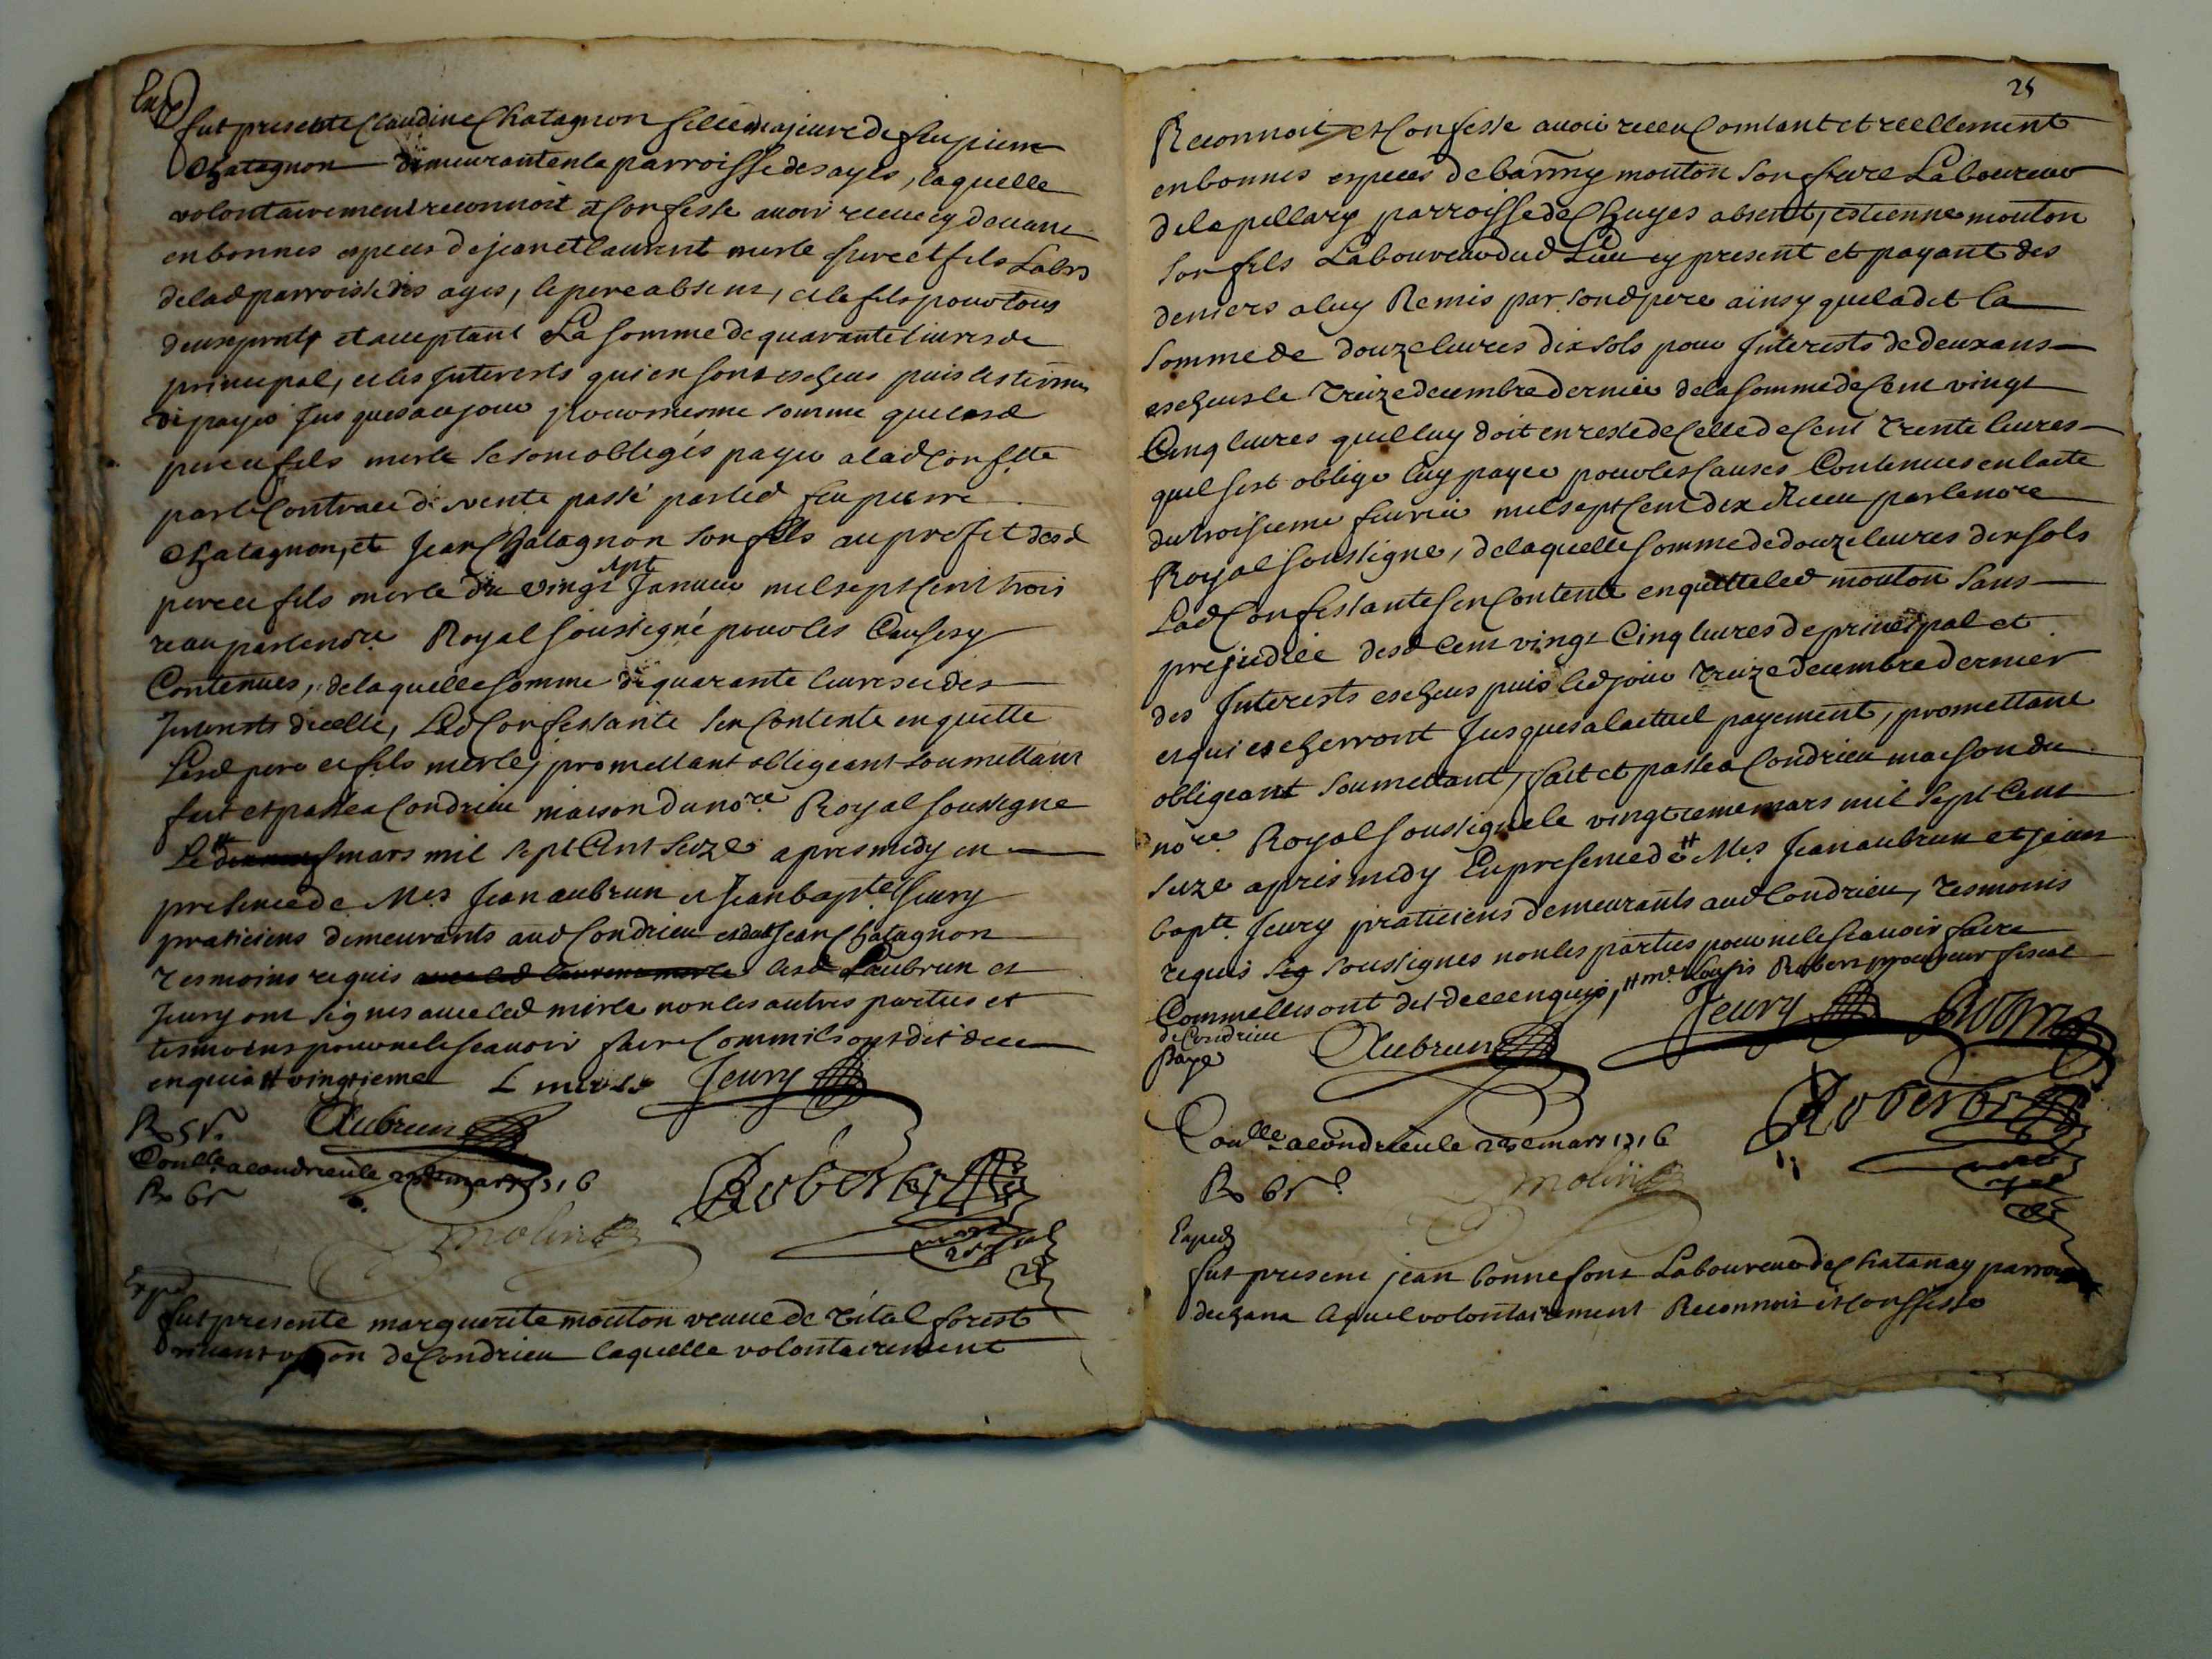 Exp
fut presente Claudine Chatagnon fille majeure de feu pierre
Chatagnon demeurante en la parroisse des ayes, laquelle
volontairement reconnoit et confesse avoir receu cy devant
en bonnes especes de jean et laurent merle pere et fils Labrs
de lad parroisse des ayes, le pere absent, et le fils pour tous
deux pnt et acceptant La somme de quarante livres de
principal, et les Interests qui en sont escheus puis les termes
de payer Jusques a ce jour pour mesme somme que lesd
pere et fils merle se sont obligés payer a lad Confste
par le Contract de vente passé par led feu pierre
Chatagnon, et Jean Chatagnon son fils au profit desd
pere et fils merle du vingt sept Janvier mil sept cent trois
receu par le nore Royal soussigné pour les Causes y
Contenues, de laquelle somme de quarante livres et des
Interests dicelle, Lad Confessante sen Contente en quitte
Lesd pere et fils merle, promettant obligeant soumettant
fait et passé a Condrieu maison du nore Royal soussigne
Le mars mil sept Cent seize apres midy en
presence de Mes Jean aubrun et Jean bapte Jeury
praticiens demeurants aud Condrieu et dud Jean Chatagnon
tesmoins requis avec led laurent merle lesd Laubrun et
Jeury ont signes avec led merle non les autres parties et
tesmoins pour ne le scavoir faire Comm ils ont dit de ce
enquis # vingtieme L merle Jeury
R 5 s. Aubrun
Conlle a condrieu le mars 1716
R 6 s
Robert
molin
Exp
fut presente marguerite mouton veuve de vital forest
vivant vron de Condrieu laquelle volontairement
25
Reconnoit et Confesse avoir receu Comtant et reellement
en bonnes especes de barmy mouton son frere Laboureur
de la pellary parroisse de Chuyes absent, estienne mouton
son fils Laboureur dud Lieu cy present et payant des
deniers a luy Remis par sond pere ainsy quil a dit la
somme de douze livres dix sols pour Interests de deux ans
escheus le treize decembre dernier de la somme de Cent vingt
Cinq livres quil luy doit en reste de Celle de Cent trente livres
quil sest oblige luy payer pour les Causes Contenues en lacte
du troisieme fevrier mil sept cent dix Receu par le nore
Royal soussigne, de laquelle somme de douze livres dix sols
Lad Confessante sen Contente en quitte led mouton sans
prejudice desd Cent vingt Cinq livres de principal et
des Interests escheus puis led jour treize decembre dernier
et qui escherront Jusques a lactuel payement, promettant
obligeant soumettant, fait et passé a Condrieu maison du
nore Royal soussigne le vingtieme mars mil sept Cent
seize apres midy En presence de # Mes Jean aubrun et jean
bapte Jeury praticiens demeurants aud Condrieu, tesmoins
requis sig soussignes non les parties pour ne le scavoir faire
Comme elles ont dit de ce enquis, # me Louis Robert procureur fiscal
de Condrieu
paye Aubrun Jeury Robert
Robert
Conlle a condrieu le mars 1716
R 6 s
molin
Exped
fut present jean bonnefont Laboureur de Chatanay parroisse
de lequel volontairement Reconnoit et Confesse